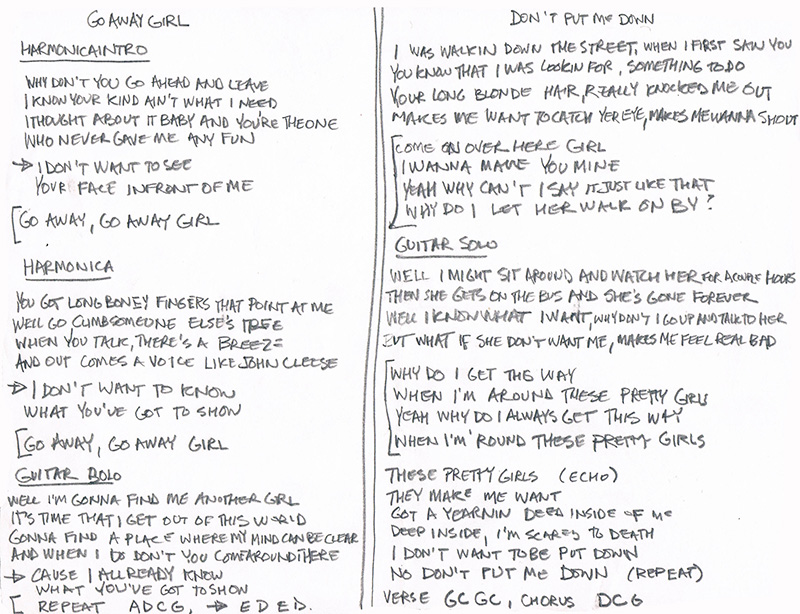 GO AWAY GIRL
HARMONICA INTRO
WHY DON'T YOU GO AHEAD AND LEAVE
I KNOW YOUR KIND AIN'T WHAT I NEED
I THOUGHT ABOUT IT BABY AND YOU'RE THE ONE
WHO NEVER GAVE ME ANY FUN
→ I DON'T WANT TO SEE
YOUR FACE INFRONT OF ME
[GO AWAY, GO AWAY GIRL
HARMONICA
YOU GOT LONG BONEY FINGERS THAT POINT AT ME
WE'LL GO CLIMB SOMEONE ELSE'S TREE
WHEN YOU TALK, THERE'S A BREEZE
AND OUT COMES A VOICE LIKE JOHN CLEESE
→ I DON'T WANT TO KNOW
WHAT YOU'VE GOT TO SHOW
[GO AWAY, GO AWAY GIRL
GUITAR SOLO
WELL I'M GONNA FIND ME ANOTHER GIRL
IT'S TIME THAT I GET OUT OF THIS WORLD
GONNA FIND A PLACE WHERE MY MIND CAN BE CLEAR
AND WHEN I DO DON'T YOU COME AROUND THERE
→ CAUSE I ALLREADY KNOW
WHAT YOU'VE GOT TO SHOW
[ REPEAT ADCG, → EDED.
DON'T PUT ME DOWN
I WAS WALKIN DOWN THE STREET, WHEN I FIRST SAW YOU
YOU KNOW THAT I WAS LOOKIN FOR, SOMETHING TO DO
YOUR LONG BLONDE HAIR, REALLY KNOCKED ME OUT
MAKES ME WANT TO CATCH YER EYE, MAKES ME WANNA SHOUT
[COME ON OVER HERE GIRL
I WANNA MAKE YOU MINE
YEAH WHY CAN'T I SAY IT JUST LIKE THAT
WHY DO I LET HER WALK ON BY?
GUITAR SOLO
WELL I MIGHT SIT AROUND AND WATCH HER FOR A COUPLE HOURS
THEN SHE GETS ON THE BUS AND SHE'S GONE FOREVER
WELL I KNOW WHAT I WANT, WHY DON'T I GO UP AND TALK TO HER
BUT WHAT IF SHE DON'T WANT ME, MAKES ME FEEL REAL BAD
[WHY DO I GET THIS WAY
WHEN I'M AROUND THESE PRETTY GIRLS
YEAH WHY DO I ALWAYS GET THIS WAY
WHEN I'M 'ROUND THESE PRETTY GIRLS
THESE PRETTY GIRLS (ECHO)
THEY MAKE ME WANT
GOT A YEARNIN DEEP INSIDE OF ME
DEEP INSIDE, I'M SCARED TO DEATH
I DON'T WANT TO BE PUT DOWN
NO DON'T PUT ME DOWN (REPEAT)
VERSE GCGC, CHORUS DCG